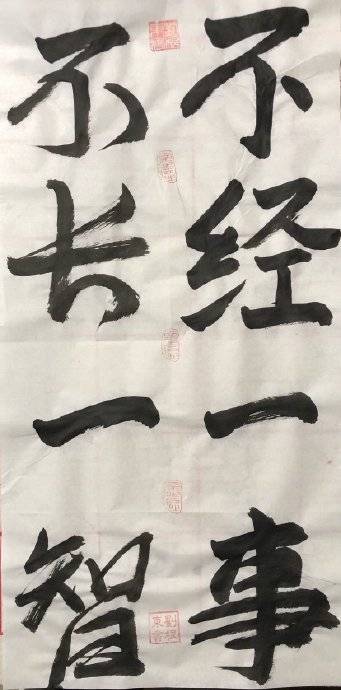 不经一事
不长一智